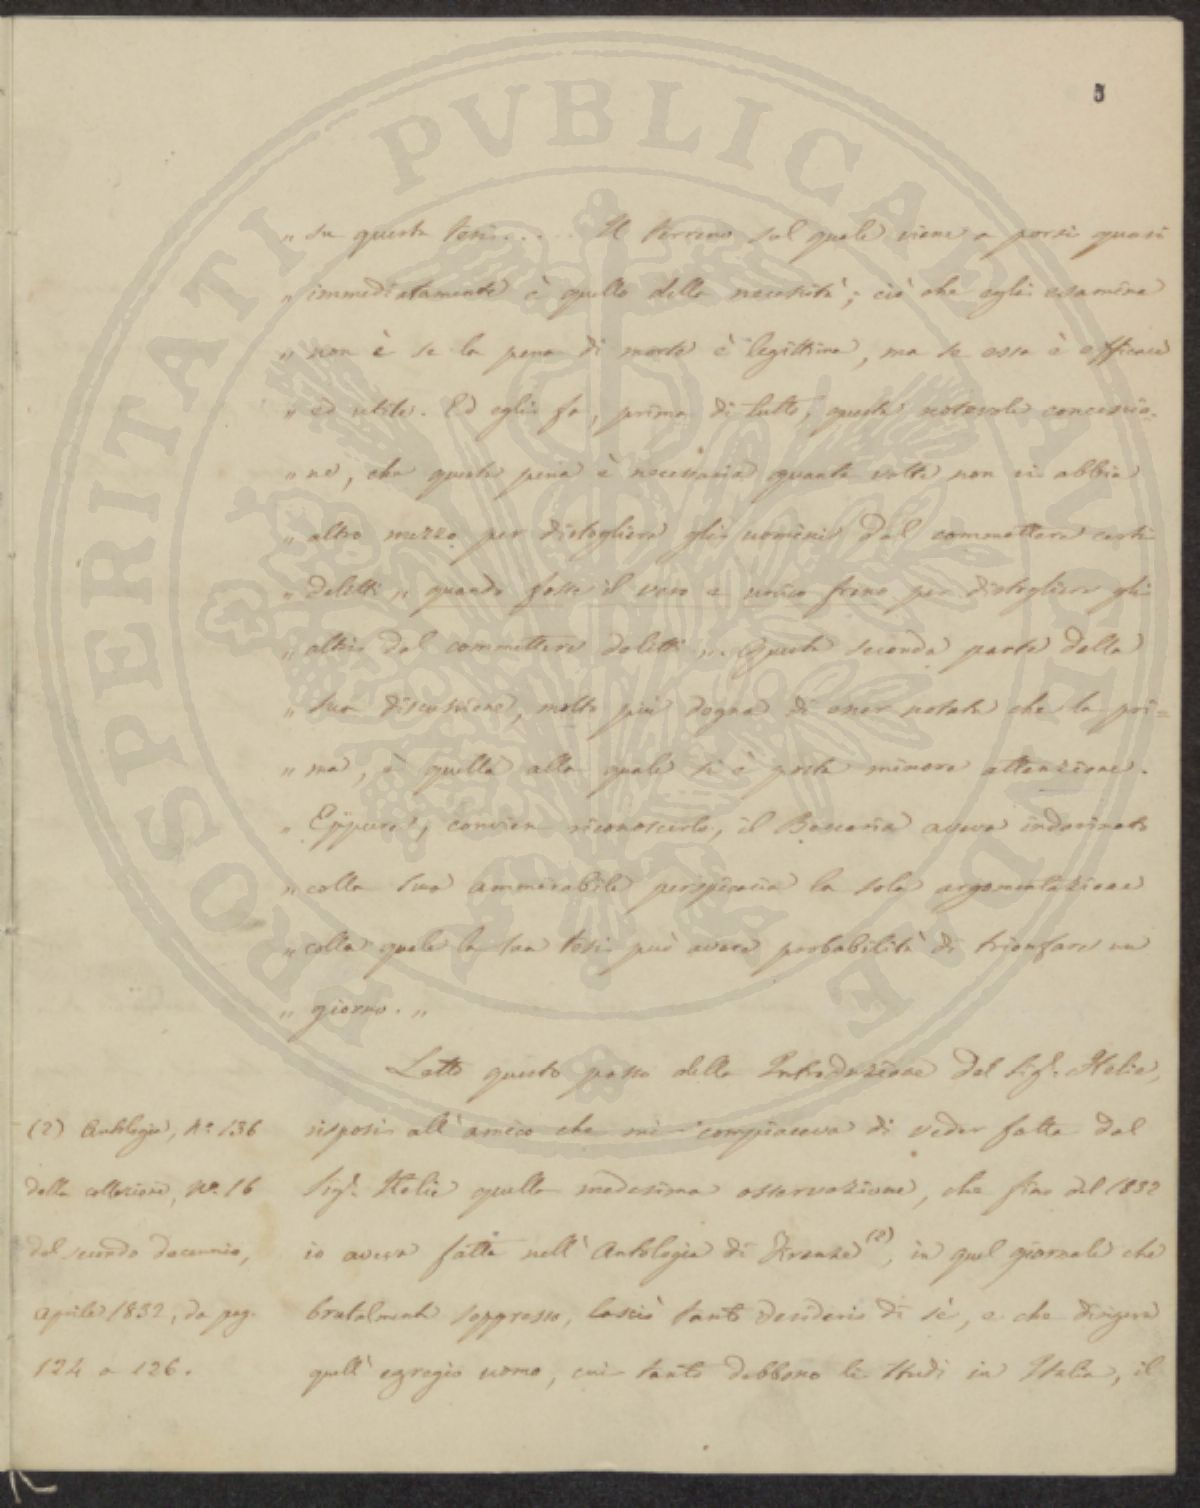 5
„ su questa tesi..... Il terreno sul quale viene a porsi quasi
„ immediatamente è quello della necessità; ciò che egli esamina
„ non è se la pena di morte è legittima, ma se essa è efficace
„ ed utile. Ed egli fa, prima di tutto, questa notevole concessio-
„ ne, che questa pena è necessaria quante volte non vi abbia
„ altro mezzo per distogliere gli uomini dal commettere certi
„ delitti „ quando fosse il vero e unico freno per distogliere gli
„ altri dal commettere delitti „. Questa seconda parte della
„ sua discussione, molto più degna di esser notata che la pri=
„ ma, è quella alla quale si è posta minore attenzione.
„ Eppure, convien riconoscerlo, il Beccaria aveva indovinato
„ colla sua ammirabile perspicacia la sola argomentazione
„ colla quale la sua tesi può avere probabilità di trionfare un
„ giorno. „
Letto questo passo della Introduzione del Sig.r Helie,
risposi all'amico che mi compiaceva di veder fatta dal
Sig.r Helie quella medesima osservazione, che fino del 1832
io aveva fatta nell'Antologia di Firenze (2), in quel giornale che
brutalmente soppresso, lasciò tanto desiderio di sè, e che dirigeva
quell'egregio uomo, cui tanto debbono li studi in Italia, il
(2) Antologia, N.o 136
della collezione, N.o 16
del secondo decennio,
Aprile 1832, da pag.
124 a 126.
PROSPERITATI PVBLICAE AVGENDAE